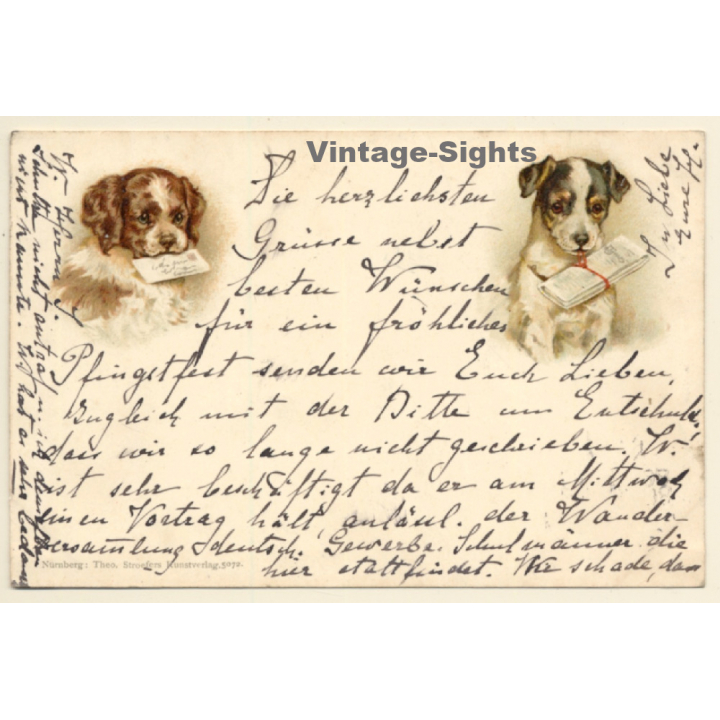 Vintage-Sights
Die herzlichsten
Grüsse nebst
besten Wünschen
für ein fröhliches
Pfingstfest senden wir Euch Lieben,
zugleich mit der Bitte um Entschuld.,
dass wir so lange nicht geschrieben. W.
ist sehr beschäftigt da er am Mittwoch
einen Vortrag hält, anläsl. der Wander-
versammlung deutsch. Gewerbe. Schulmänner die
hier stattfindet. Wie schade, dass
W. Herrn
nicht antraf
nicht kannte. Er hat es sehr
In Liebe
Eure
Nürnberg: Theo. Stroefers Kunstverlag. 5072.